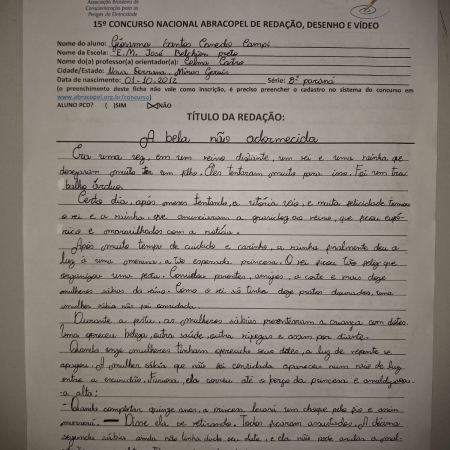 Associação Brasileira de
Conscientização para os
Perigos da Eletricidade
15º CONCURSO NACIONAL ABRACOPEL DE REDAÇÃO, DESENHO E VÍDEO
Nome do aluno: Giovanna Santos Canedo Campi
Nome da Escola: E.M. José Belchior preto
Nome do(a) professor(a) orientador(a): Celma Castro
Cidade/Estado: Nova Serrana, Minas Gerais
Data de nascimento: 01-10-2012 Série: 
(o preenchimento deste ficha não vale como inscrição, é preciso preencher o cadastro no sistema do concurso em
www.abracopel.org.br/concurso)
ALUNO PCD? ( )SIM NÃO
TÍTULO DA REDAÇÃO:
A bela não adormecida
Era uma vez, em um reino distante, um rei e uma rainha que
desejaram muito ter um filho. Eles tentaram muito para isso. Foi um tra
balho árduo.
Certo dia, após meses tentando, a vitória veio, e muita felicidade tomou
o rei e a rainha, que anunciaram a gravidez ao reino, que ficou eufó
rico e maravilhados com a notícia.
Após muito tempo de cuidado e carinho, a rainha finalmente deu a
luz à uma menina, a tão esperada princesa. O rei ficou tão feliz que
organizou uma festa. Convidou parentes, amigos, a corte e mais doze
mulheres sábias do reino. Como o rei só tinha doze pratos dourados, uma
mulher sábia não foi convidada.
Durante a festa, as mulheres sábias presentearam a criança com dotes.
Uma ofereceu beleza, outra saúde, outra riquezas e assim por diante.
Quando onze mulheres tinham oferecido seus dotes, a luz de repente se
apagou. A mulher sábia que não foi convidada apareceu num raio de luz
entre a escuridão. Furiosa, ela correu até o berço da princesa e amaldiçoou-
a alto:
- Quando completar quinze anos, a princesa levará um choque pelo fio e assim
morrerá. — Disse ela se retirando. Todos ficaram assustados. A décima
segunda sábia ainda não tinha dado seu dote, e ela não pode anular a mal-